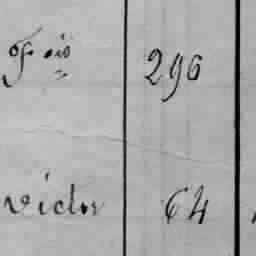 Fois 296
victor 64